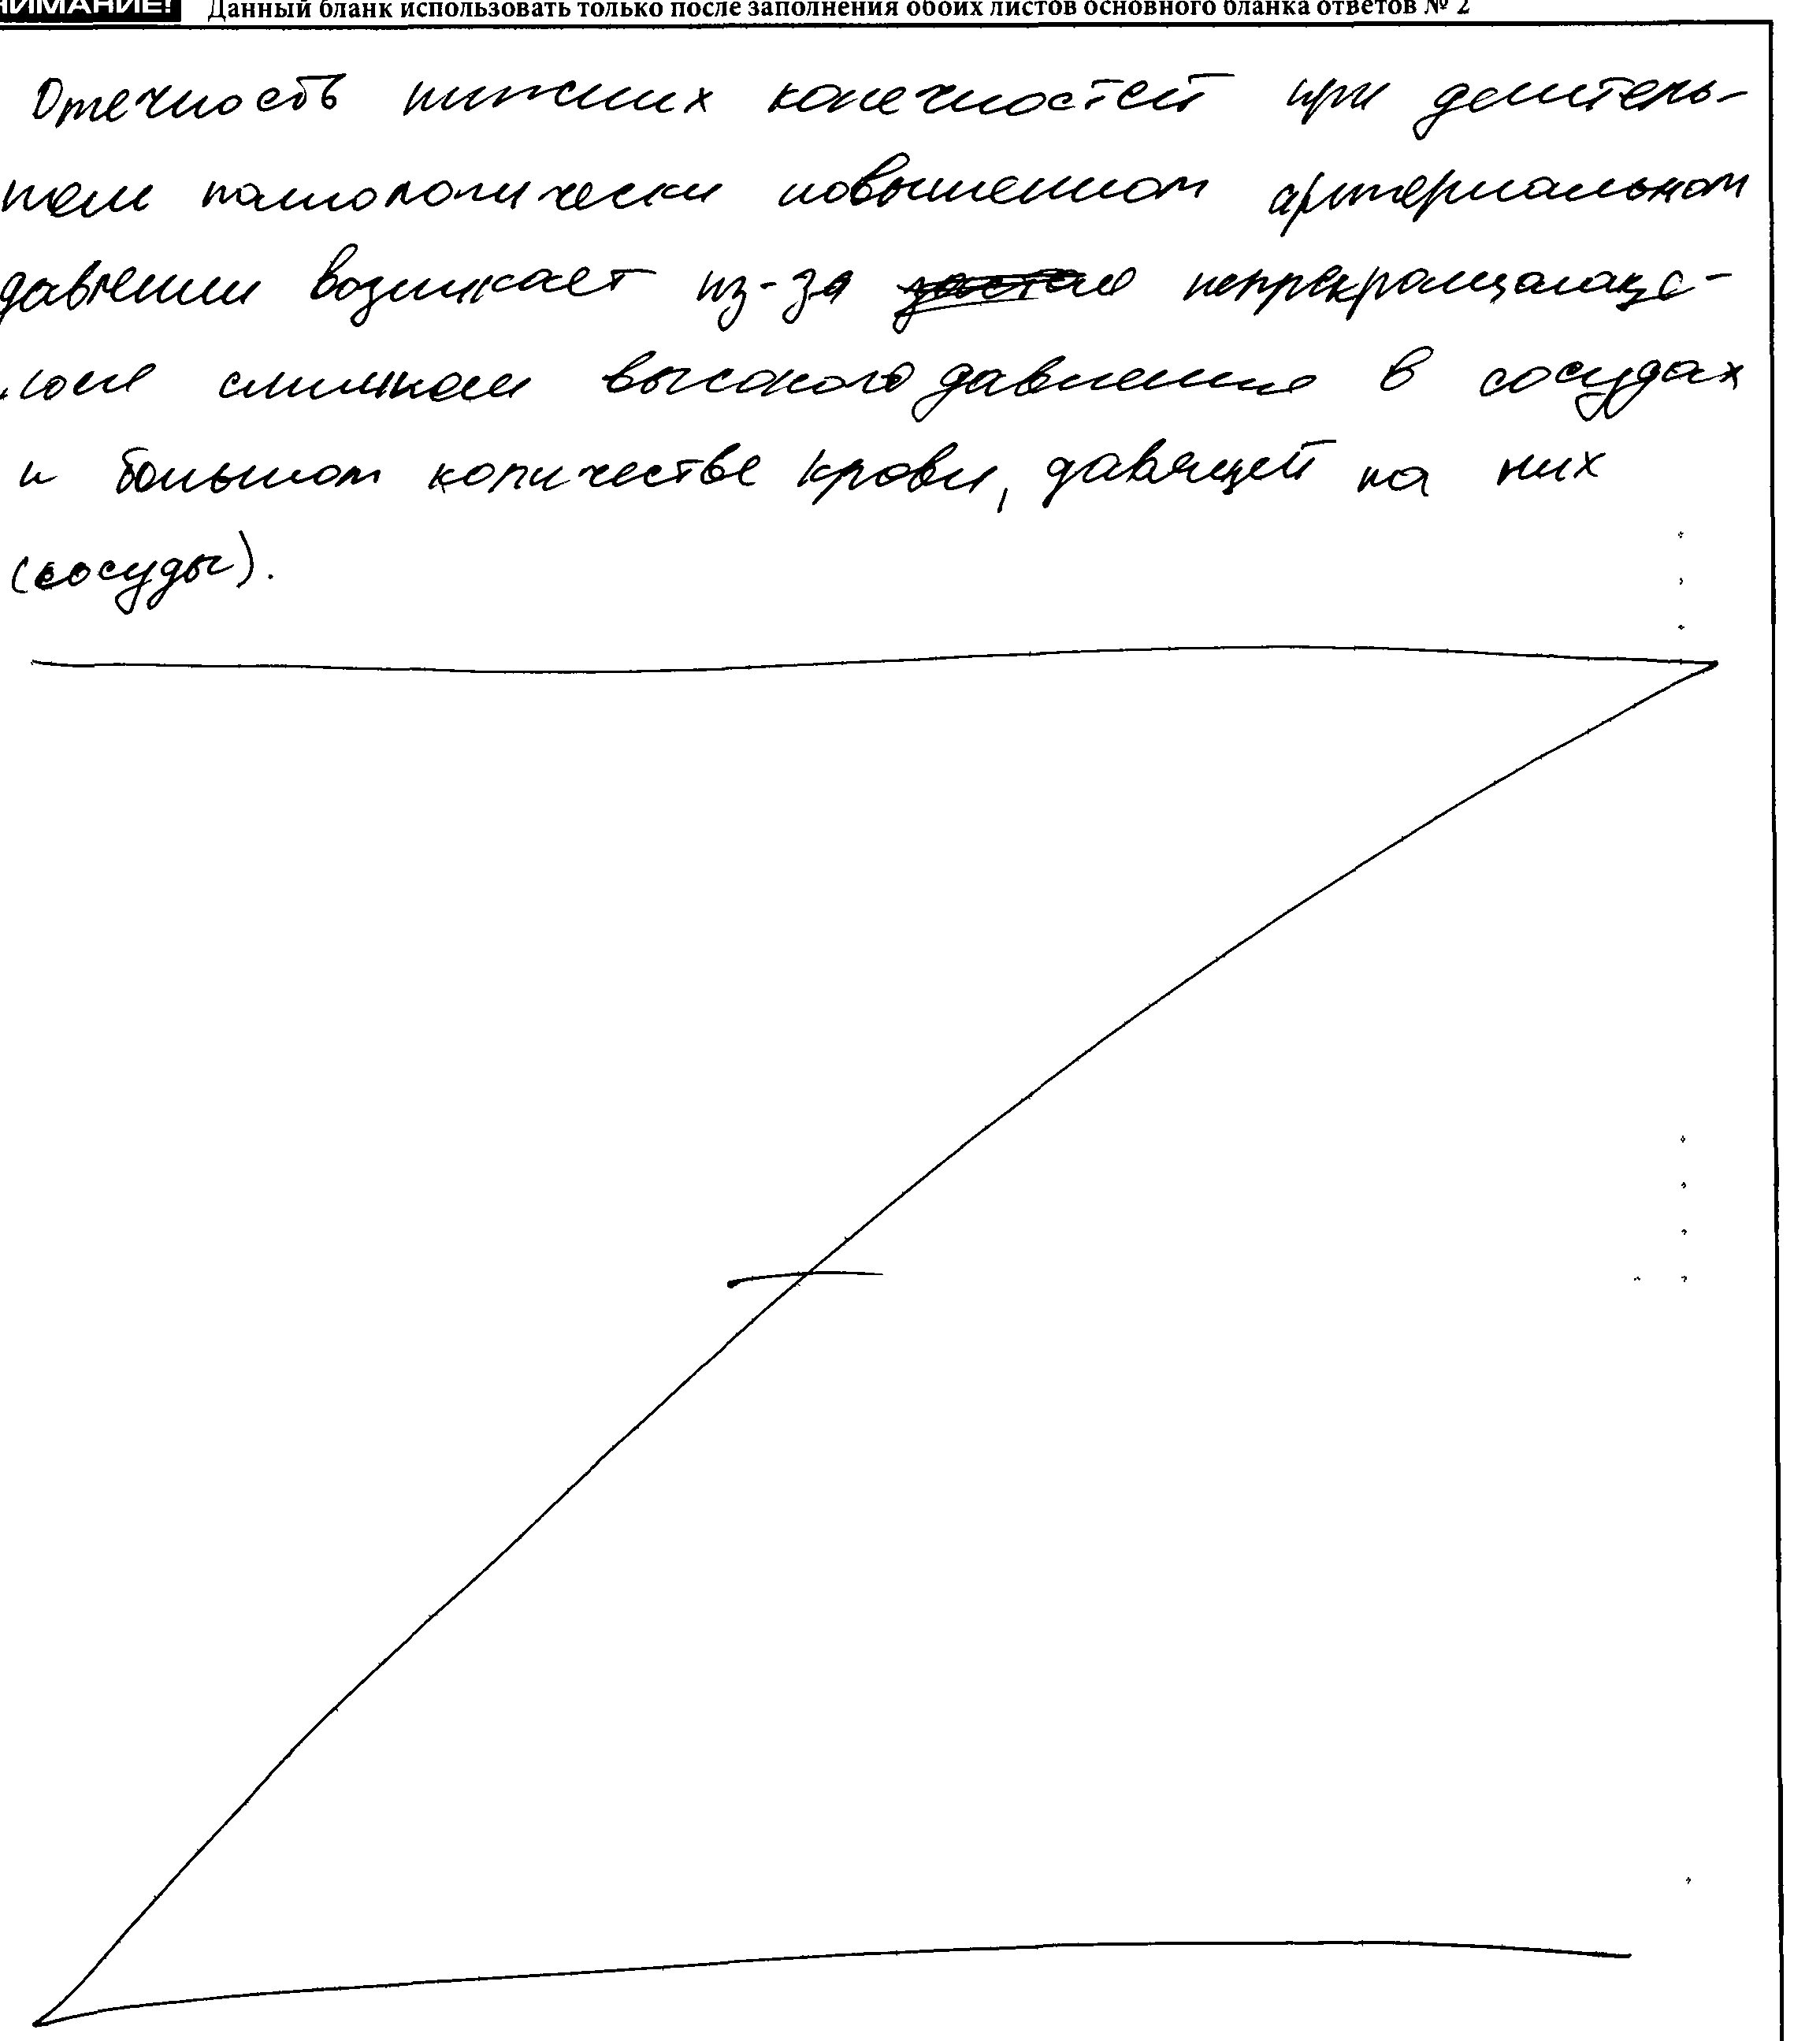 НИМАНИЕ! Данный бланк использовать только после заполнения обоих листов основного бланка ответов № 2
Отечность нижних конечностей при длитель-
ном патологически повышенном артериальном
давлении возникает из-за непрекращающе-
гося слишком высокого давления в сосудах
и большом количестве крови, давящей на них
(сосуды).